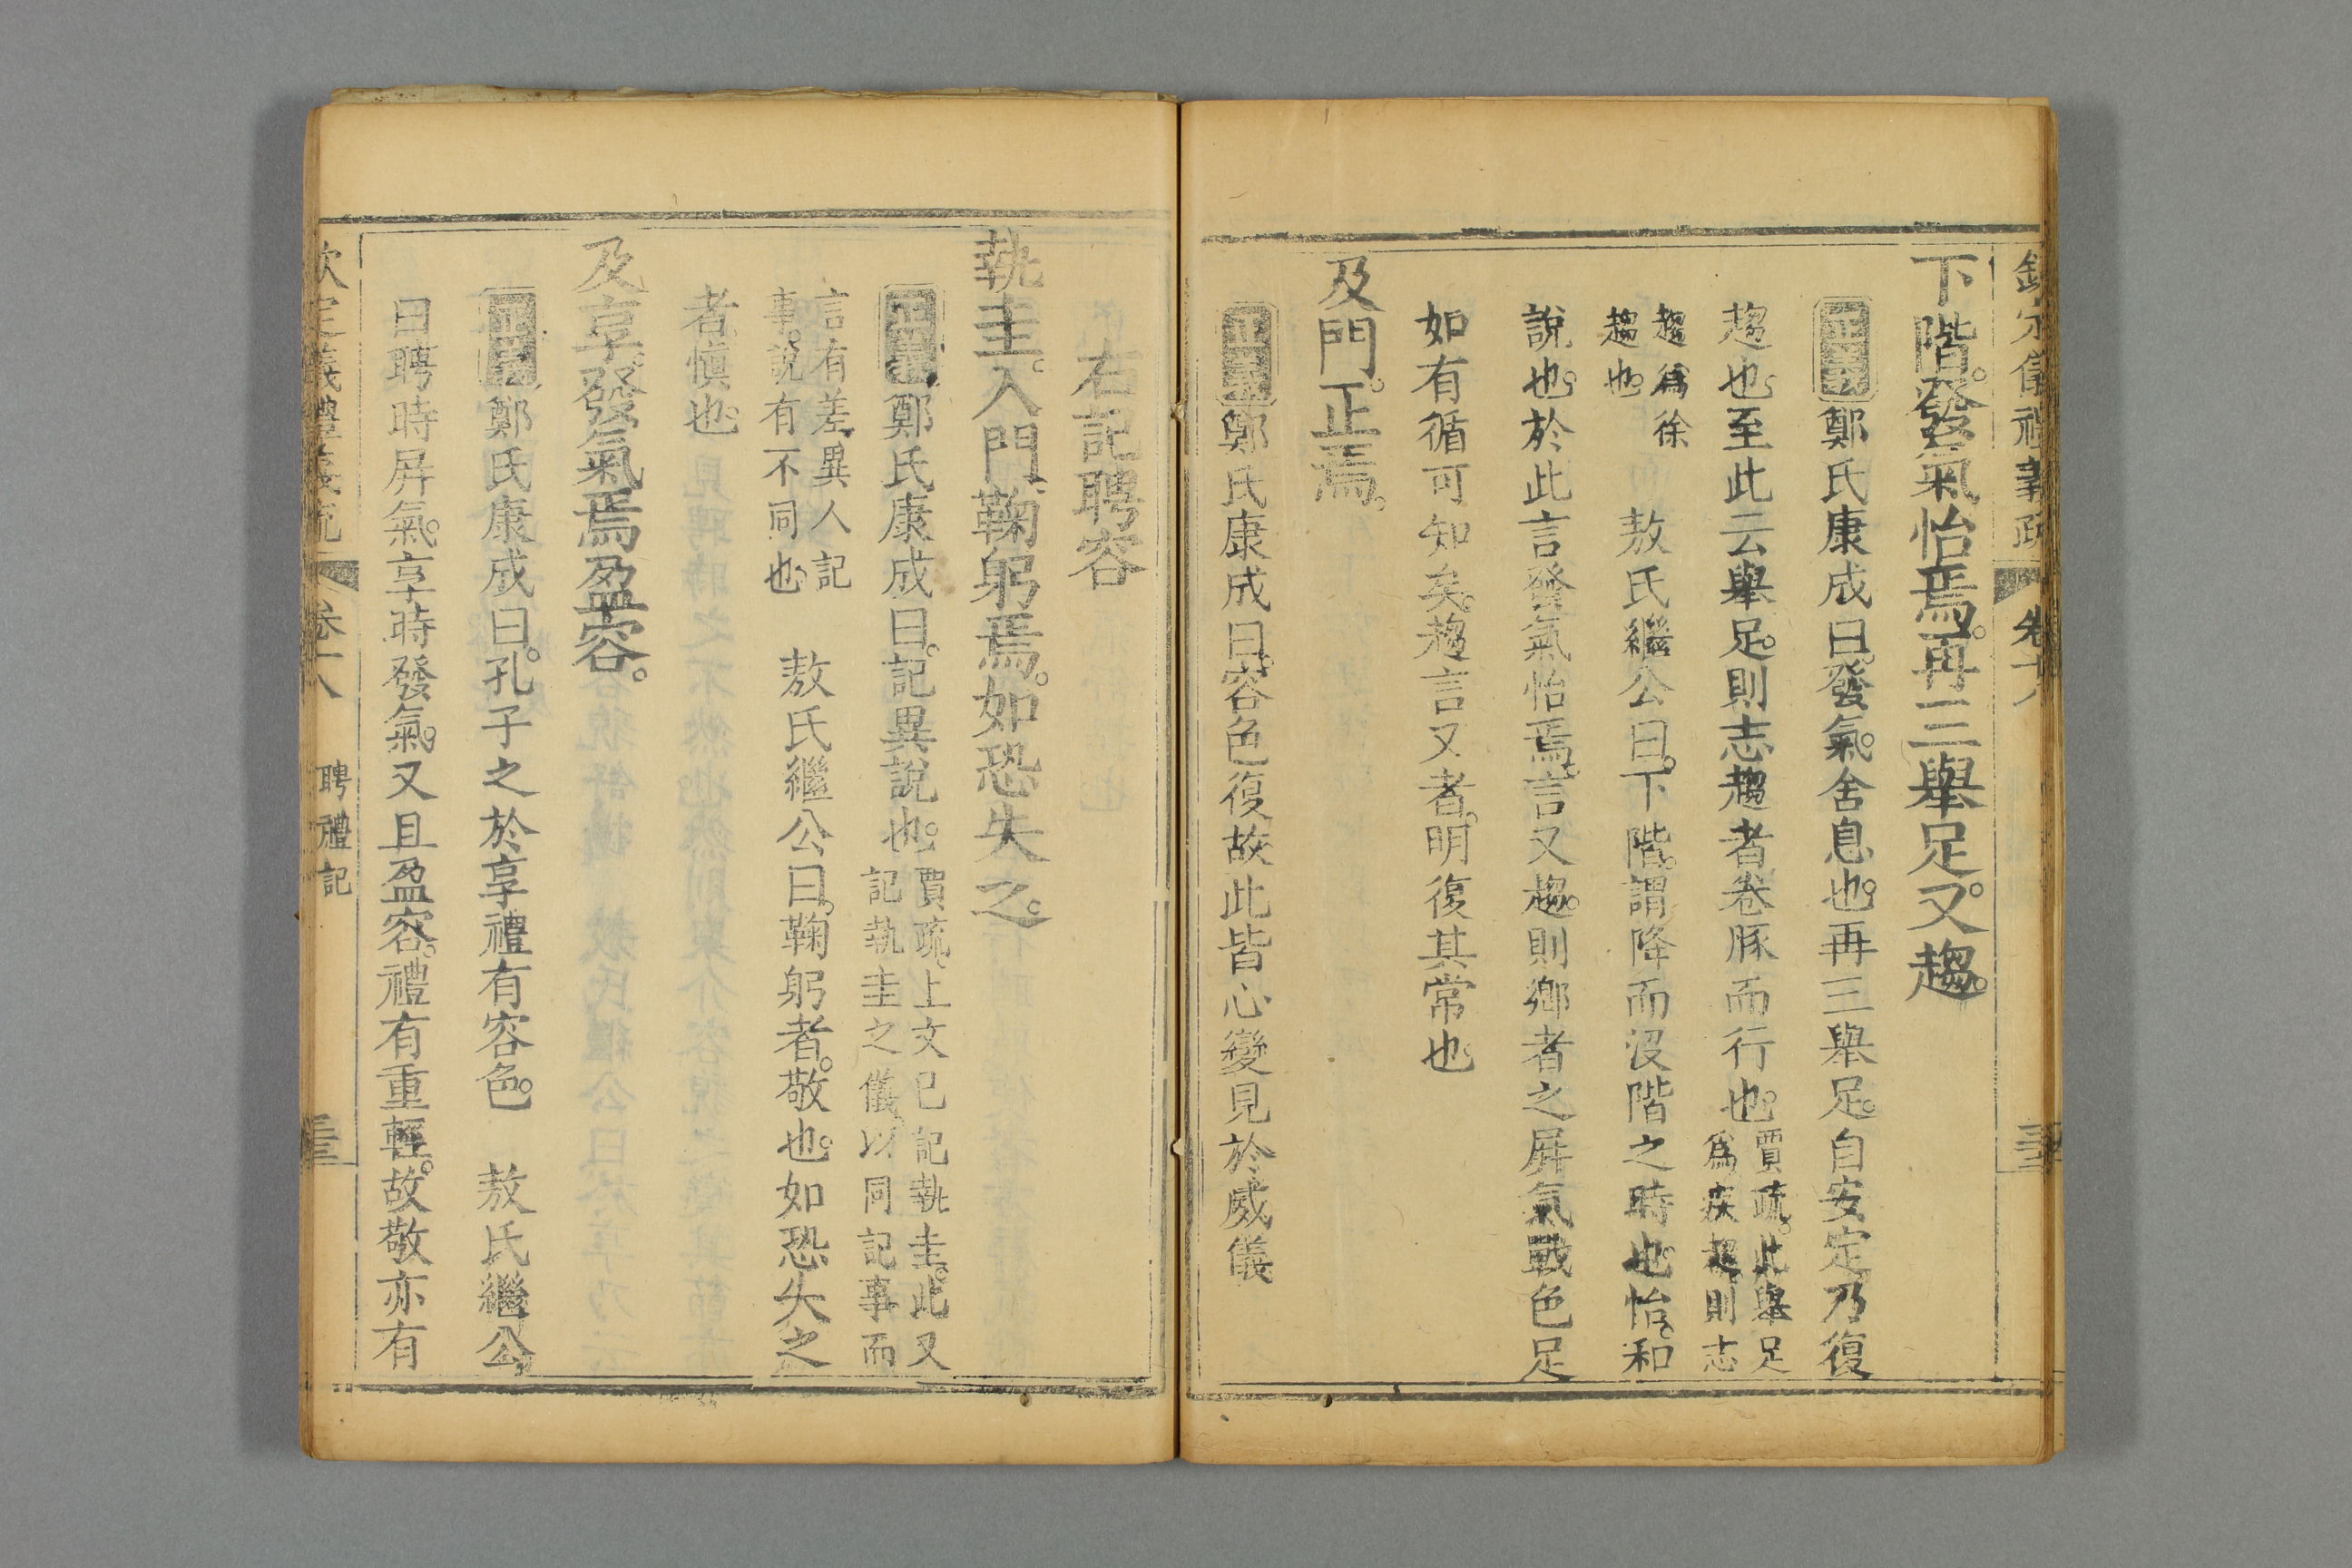 欽定儀禮義疏 卷十八
下階。發氣怡焉。再三舉足。又趨。
正義 鄭氏康成曰。發氣。舍息也。再三舉足。自安定乃復
趨也。至此云舉足。則志趨者卷豚而行也。賈疏。此舉足
爲疾趨則志
趨爲徐
趨也。 敖氏繼公曰。下階。謂降而沒階之時也。怡。和
說也。於此言發氣怡焉。言又趨。則鄉者之屛氣戰色足
如有循可知矣。趨言又者。明復其常也。
及門。正焉。
正義 鄭氏康成曰。容色復故。此皆心變見於威儀
右記聘容
執圭。入門。鞠躬焉。如恐失之。
正義 鄭氏康成曰。記異說也。賈疏。上文已記執圭。此又
記執圭之儀。以同記事而
言有差異。人記
事。說有不同也。 敖氏繼公曰。鞠躬者。敬也。如恐失之
者。愼也。
及享。發氣焉。盈容。
正義 鄭氏康成曰。孔子之於享禮。有容色。 敖氏繼公
曰。聘時屛氣。享時發氣。又且盈容。禮有重輕。故敬亦有
欽定儀禮義疏 卷十八 聘禮記